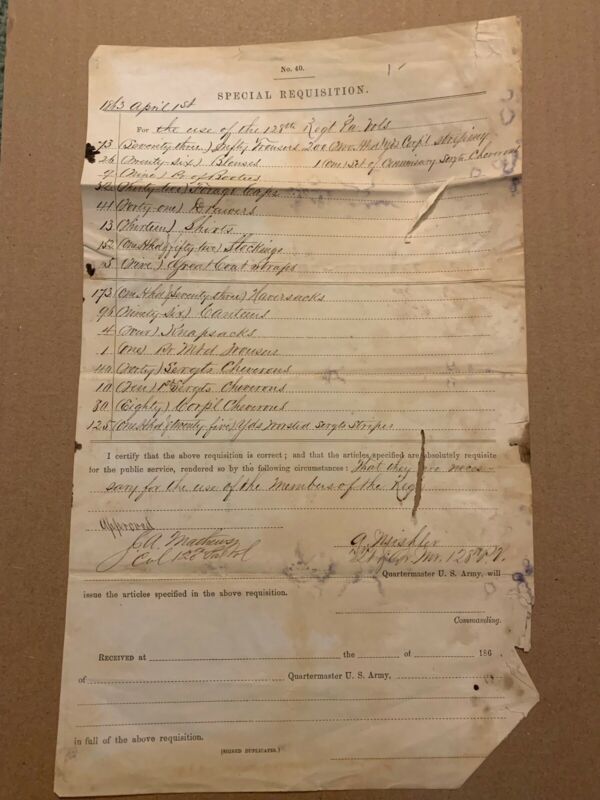 No. 40.
SPECIAL REQUISITION.
1863 April 1st
For the use of the 128th Regt Pa. Vols
73 (Seventy three) Infty Trousers 200 One Hhd Yds Corpl Stripeing
26 (Twenty six) Blouses 1 (one) Set of Commissary Sergts Cheverons
9 (Nine) Pr of Bootees
32 (Thirty two) Forage Caps
41 (Forty one) Drawers
13 (Thirteen) Shirts
152 (One Hhd & fifty two) Stockings
5 (Five) Great Coat Straps
173 (One Hhd (Seventy three) Haversacks
96 (Ninety Six) Canteens
4 (Four) Knapsacks
1 (One) Pr Mtd Trousers
40 (Forty) Sergts Cheverons
10 (Ten) 1st Sergts Cheverons
80 (Eighty) Corpl Cheverons
125 (One Hhd & twenty five) Yds Worsted Sergts Stripes
I certify that the above requisition is correct; and that the articles specified are absolutely requisite
for the public service, rendered so by the following circumstances: That they are neces-
sary for the use of the Members of the Regt
Approved
J. A. Mathews
Col 128 Pa Vol
G. Mishler
Qr. Mr. 128 P.V.
Quartermaster U. S. Army, will
issue the articles specified in the above requisition.
Commanding.
RECEIVED at the of 186
of Quartermaster U. S. Army,
in full of the above requisition.
(SIGNED DUPLICATES.)